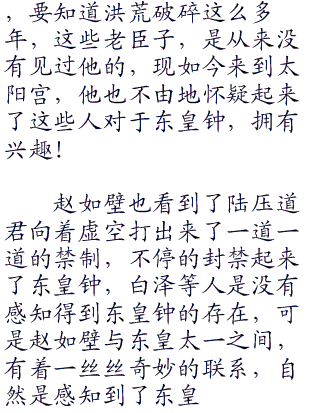 ，要知道洪荒破碎这么多
年，这些老臣子，是从来没
有见过他的，现如今来到太
阳宫，他也不由地怀疑起来
了这些人对于东皇钟，拥有
兴趣！
赵如壁也看到了陆压道
君向着虚空打出来了一道一
道的禁制，不停的封禁起来
了东皇钟，白泽等人是没有
感知得到东皇钟的存在，可
是赵如壁与东皇太一之间，
有着一丝丝奇妙的联系，自
然是感知到了东皇